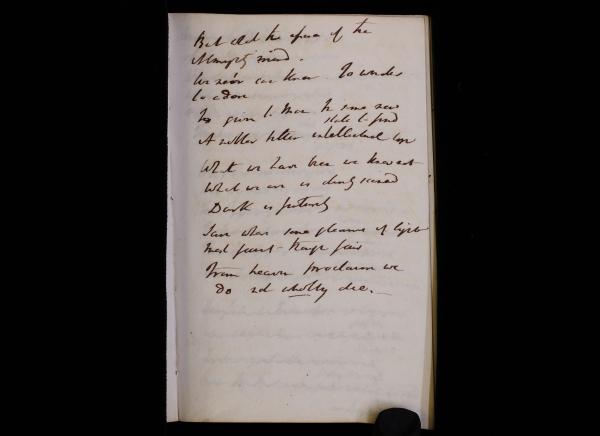 But what the  of the
Almighty mind.
We ne'er can know. To wonder
to adore
Is given to Man in some new
state to find
A nobler better intellectual 
What we have been we know not
What we are is dimly 
Dark is futurity
Save when some gleams of light
most faint though fair
From heaven proclaim we
do not wholly die.